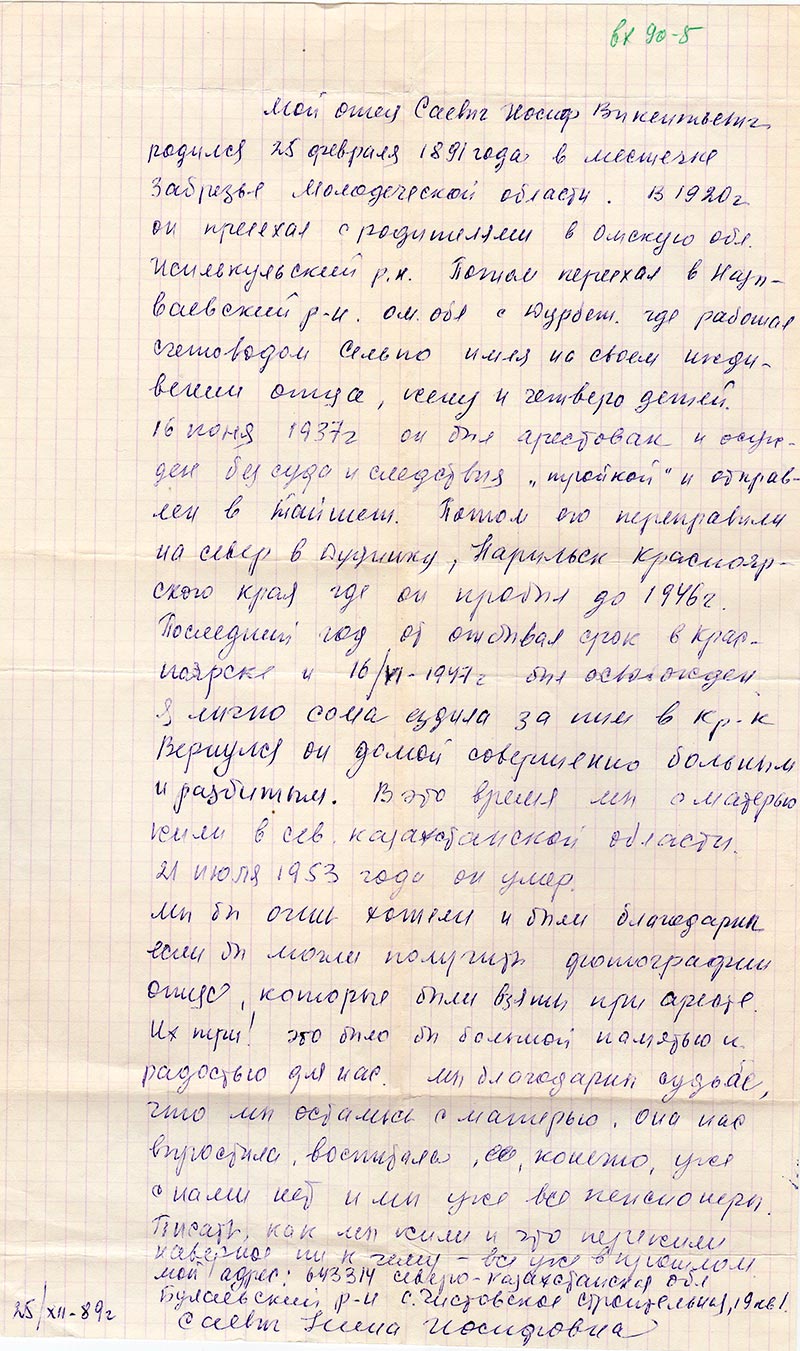 вх 90-5
Мой отец Саевич Иосиф Викентьевич
родился 25 февраля 1891 года в местечке
Забрезье Молодеческой области. В 1920г
он приехал с родителями в Омскую обл.
Исилькульский р.н. Потом переехал в Назы-
ваевский р-н. ом. обл с Дурбет. где работал
счетоводом Сельпо имея на своем ижди-
вении отца, жену и четверо детей.
16 июня 1937г он был арестован и осуж-
ден без суда и следствия „тройкой" и отправ-
лен в Тайшет. Потом его переправили
на север в Дудинку, Нарильск Краснояр-
ского края где он пробыл до 1946г.
Последний год от отбывал срок в Крас-
ноярске и 16/VI-1947г был освобожден
Я лично сама ездила за ним в Кр-к
Вернулся он домой совершенно больным
и разбитым. В это время мы с матерью
жили в сев. казахстанской области.
21 июля 1953 года он умер.
мы бы очень хотели и были благодарны
если бы могли получить фотографии
отца, которые были взяты при аресте.
Их три! это было бы большой памятью и
радостью для нас. мы благодарны судьбе,
что мы остались с матерью, она нас
выростила, воспитала, ее, конечно, уже
с нами нет и мы уже все пенсионеры.
Писать, как мы жили и это пережили
наверное ни к чему - все уже в прошлом.
мой адрес: 643314 северо-казахстанская обл
Булаевский р-н с. Чистовское строительная, 19 кв 1.
25/XII-89г Саевич Нина Иосифовна